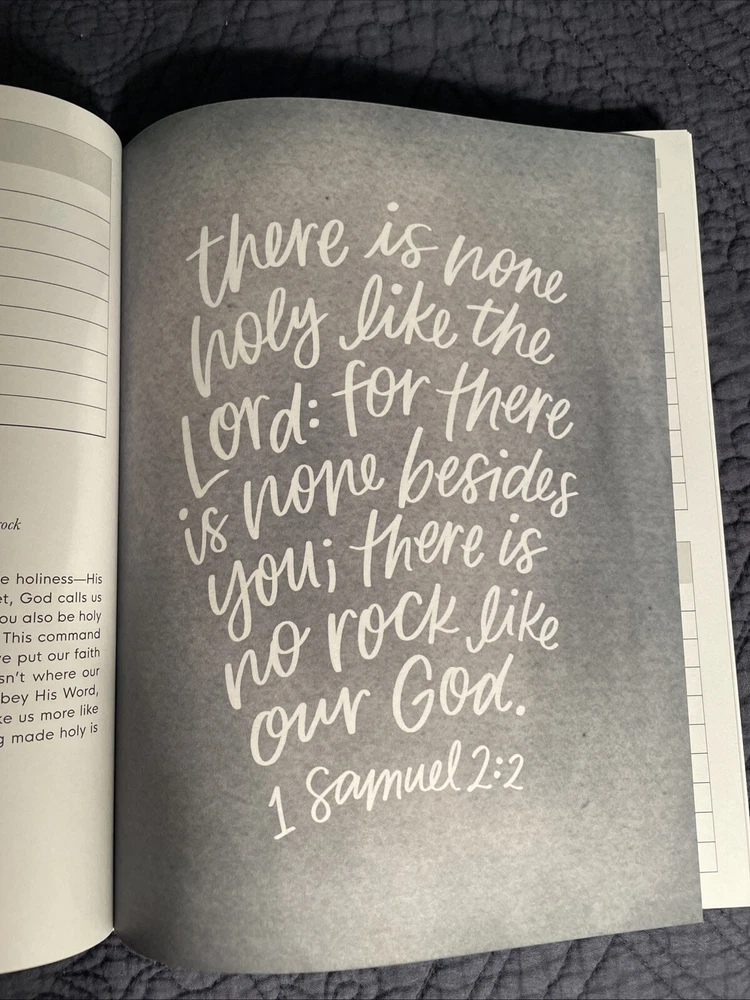 rock
e holiness—His
et, God calls us
ou also be holy
This command
ve put our faith
sn't where our
bey His Word,
ke us more like
g made holy is
there is none
holy like the
Lord: for there
is none besides
you; there is
no rock like
our God.
1 Samuel 2:2